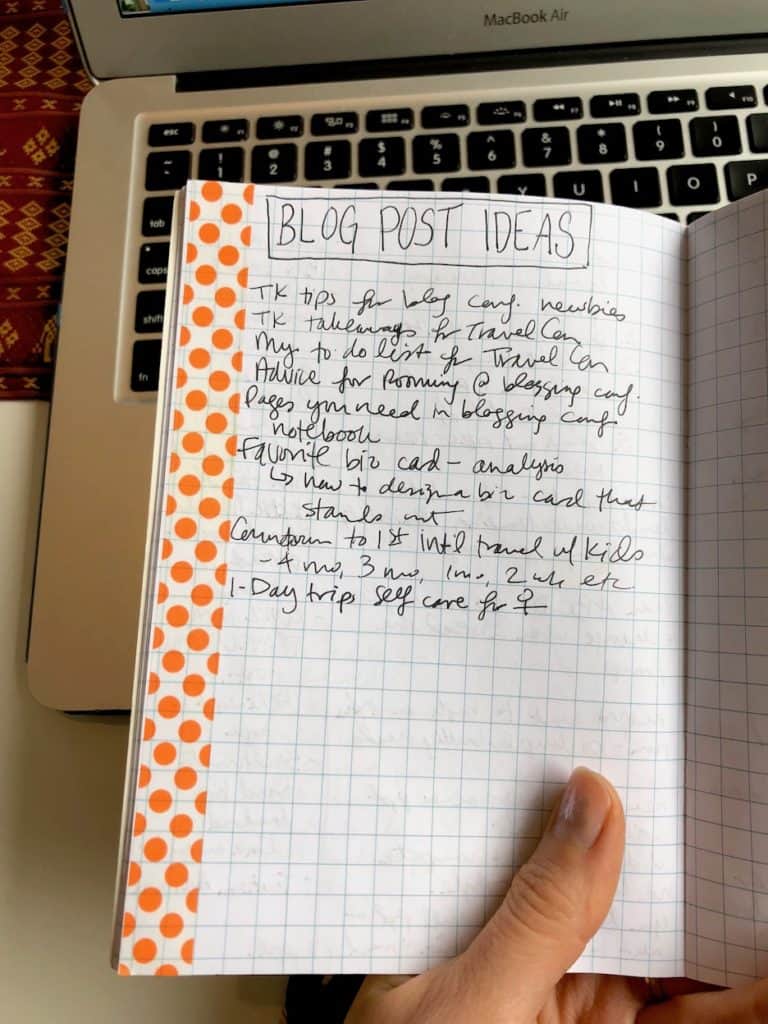 MacBook Air
esc F1 F2 F3 F4 F5 F6 F7 F8 F9 F10
~ ! 1 @ 2 # 3 $ 4 % 5 ^ 6 & 7 * 8 ( 9 ) 0
tab Y U I O P
caps
shift
fn
BLOG POST IDEAS
TK tips for blog conf. newbies
TK takeaways fr Travel Con
My to do list fr Travel Con
Advice for Rooming @ blogging conf.
Pages you need in blogging conf
notebook
Favorite biz card - analysis
↳ how to design a biz card that
stands out
Countdown to 1st int'l travel w/ kids
- 4 mo, 3 mo, 1mo, 2 wk etc
1-Day trips self care for ♀